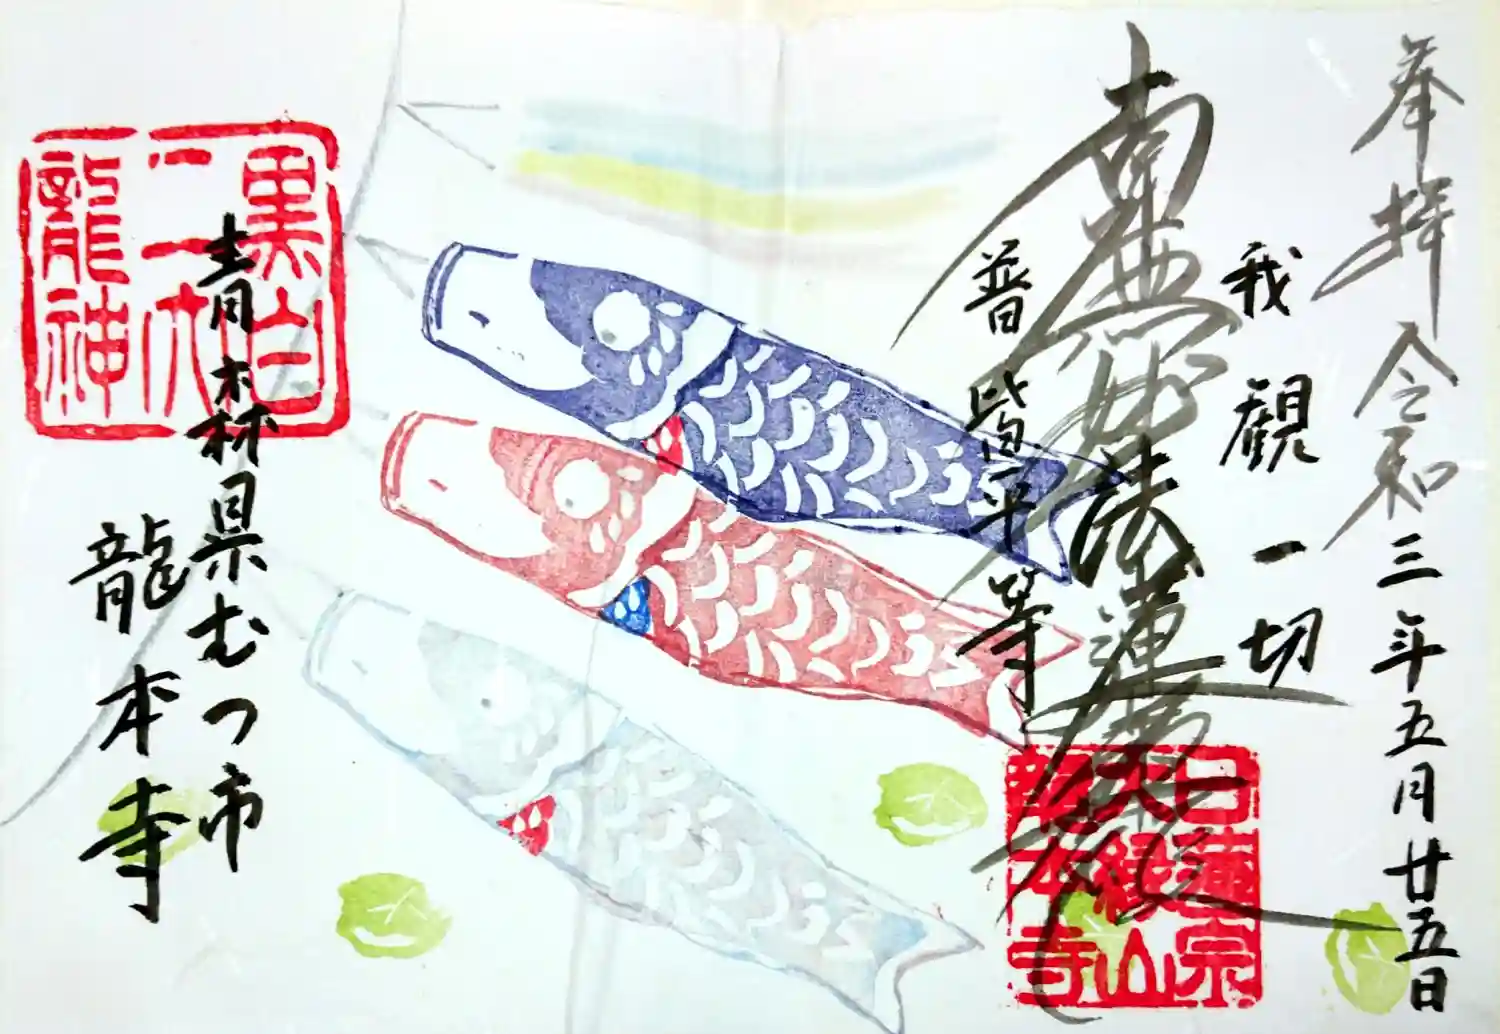 奉拝 令和三年五月廿五日
我観一切
南無妙法蓮華経
普皆平等
日蓮宗
大縁山
龍本寺
青森県むつ市
龍本寺
黒白
二大
龍神